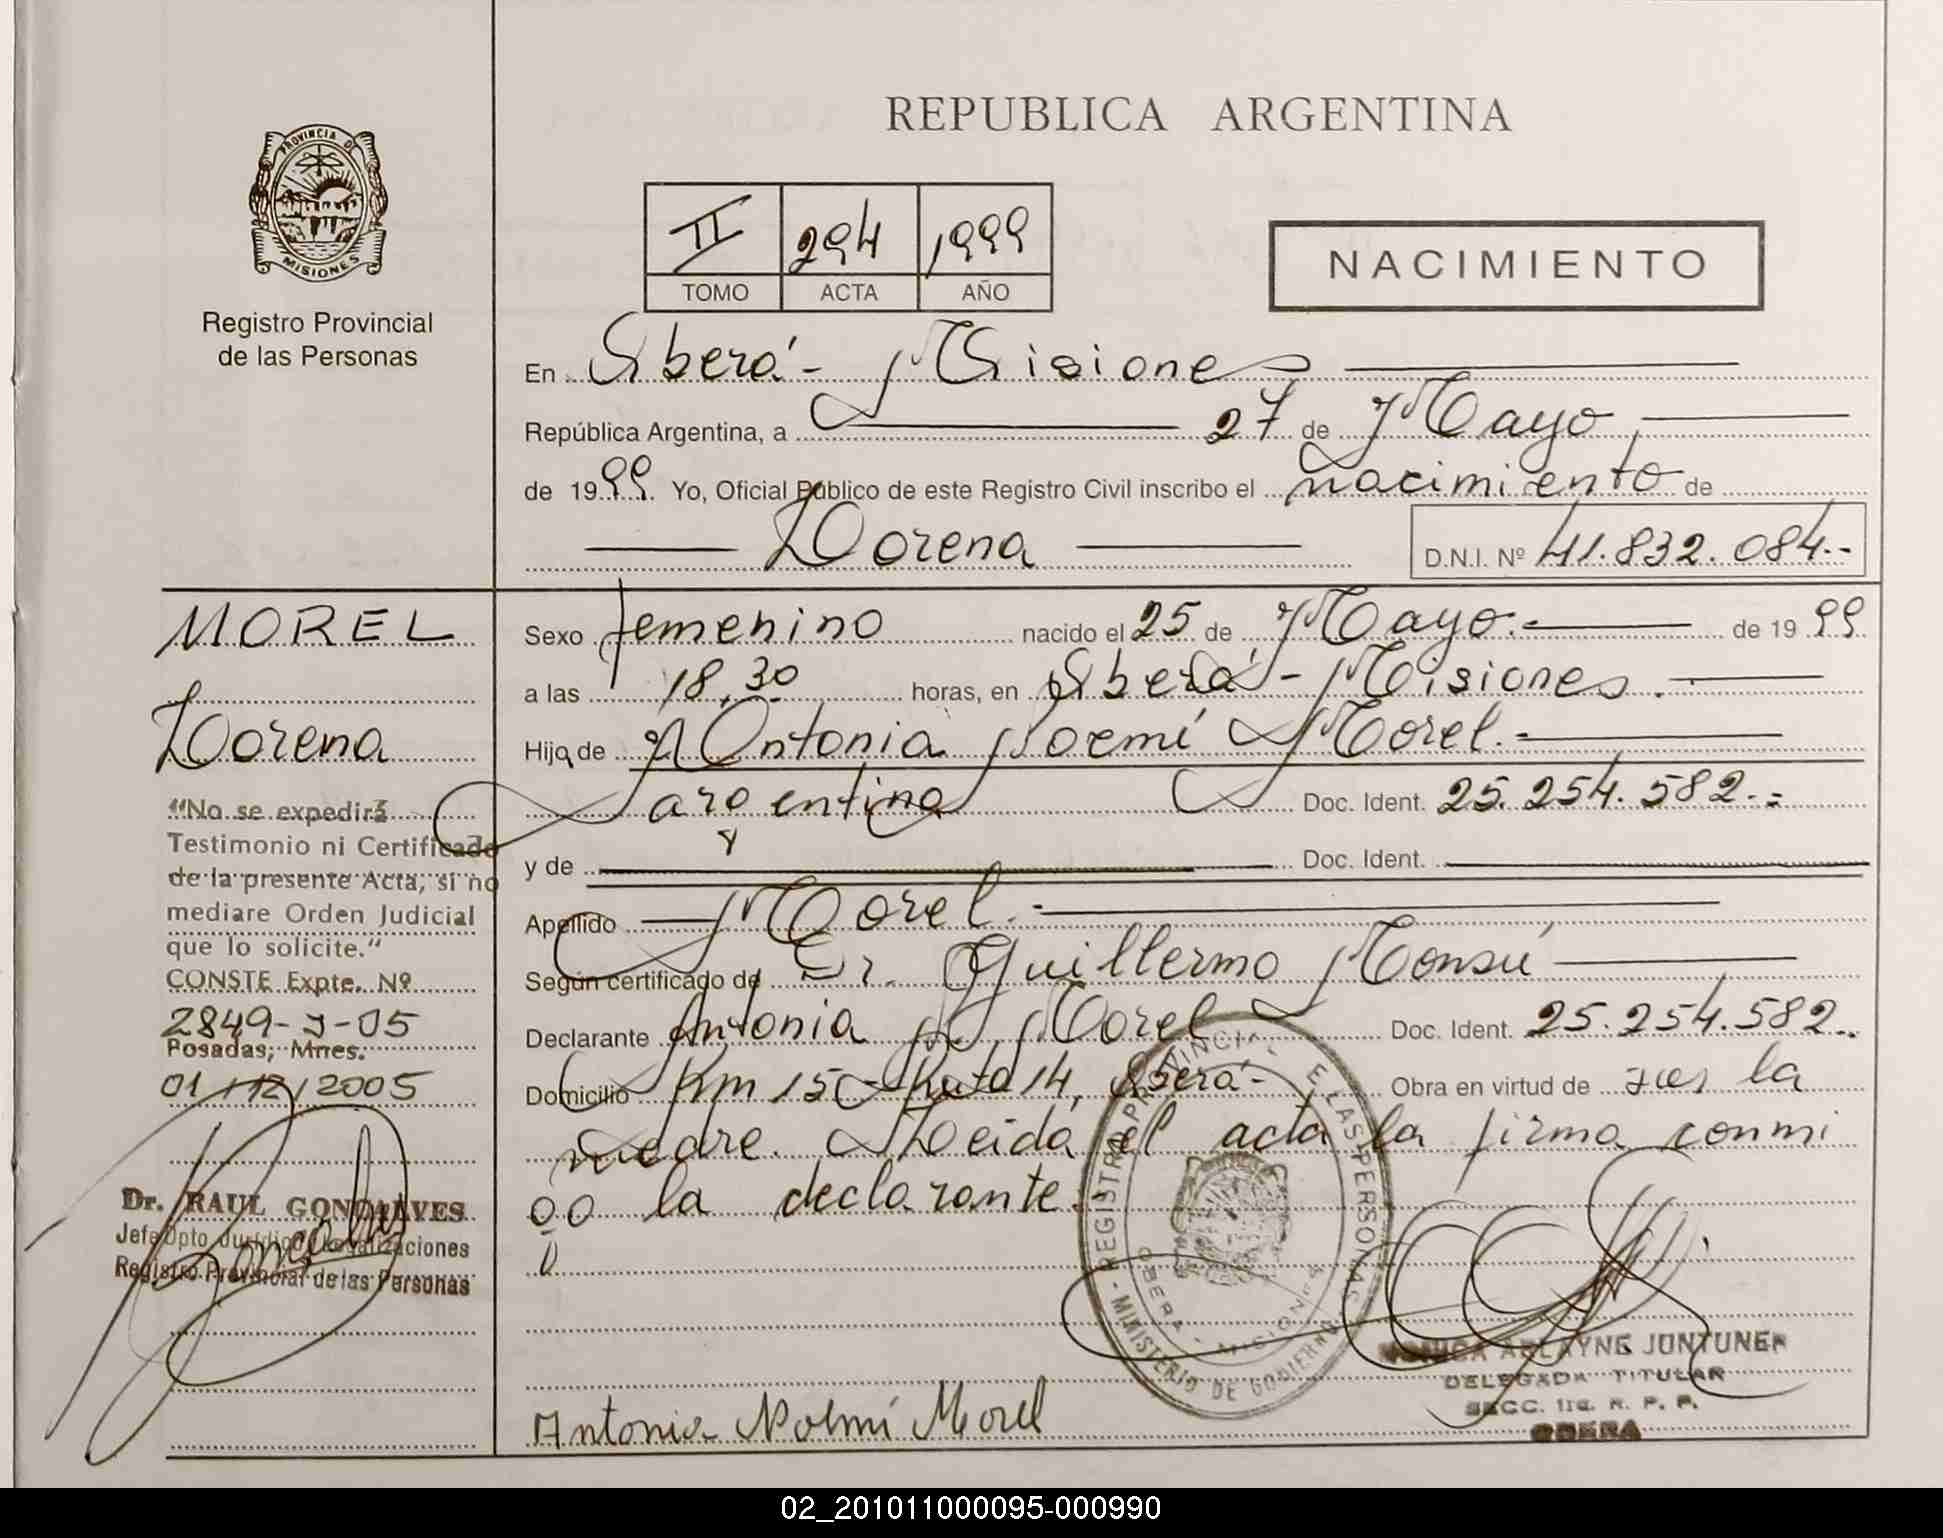 REPUBLICA ARGENTINA
PROVINCIA DE
MISIONES
Registro Provincial
de las Personas
II 294 1999
TOMO ACTA AÑO
NACIMIENTO
En Oberá - Misiones
República Argentina, a 27 de Mayo
de 1999. Yo, Oficial Público de este Registro Civil inscribo el nacimiento de
Lorena
D.N.I. Nº 41.832.084.-
MOREL
Lorena
"No se expedirá
Testimonio ni Certificado
de la presente Acta, si no
mediare Orden Judicial
que lo solicite."
CONSTE Expte. Nº
2849-J-05
Posadas, Mnes.
01/12/2005
Dr. RAUL GONÇALVES
Jefe Dpto Jurídico Legalizaciones
Registro Provincial de las Personas
Sexo femenino nacido el 25 de Mayo.- de 1999
a las 18,30 horas, en Oberá - Misiones.
Hija de Antonia Noemí Morel.-
argentina Doc. Ident. 25.254.582.-
y de Doc. Ident.
Apellido Morel.-
Según certificado de Dr. Guillermo Monsú
Declarante Antonia N. Morel Doc. Ident. 25.254.582.
Domicilio Km 15 - Ruta 14, Oberá- Obra en virtud de ser la
madre. Leida el acta la firma conmi
go la declarante.
REGISTRO PROVINCIAL DE LAS PERSONAS
OBERA - MISIONES
- MINISTERIO DE GOBIERNO
Antonia Noemí Morel
MONICA ARLAYNE JUNTUNEN
DELEGADA TITULAR
SECC. 1ra. R. P. P.
OBERA
02_201011000095-000990